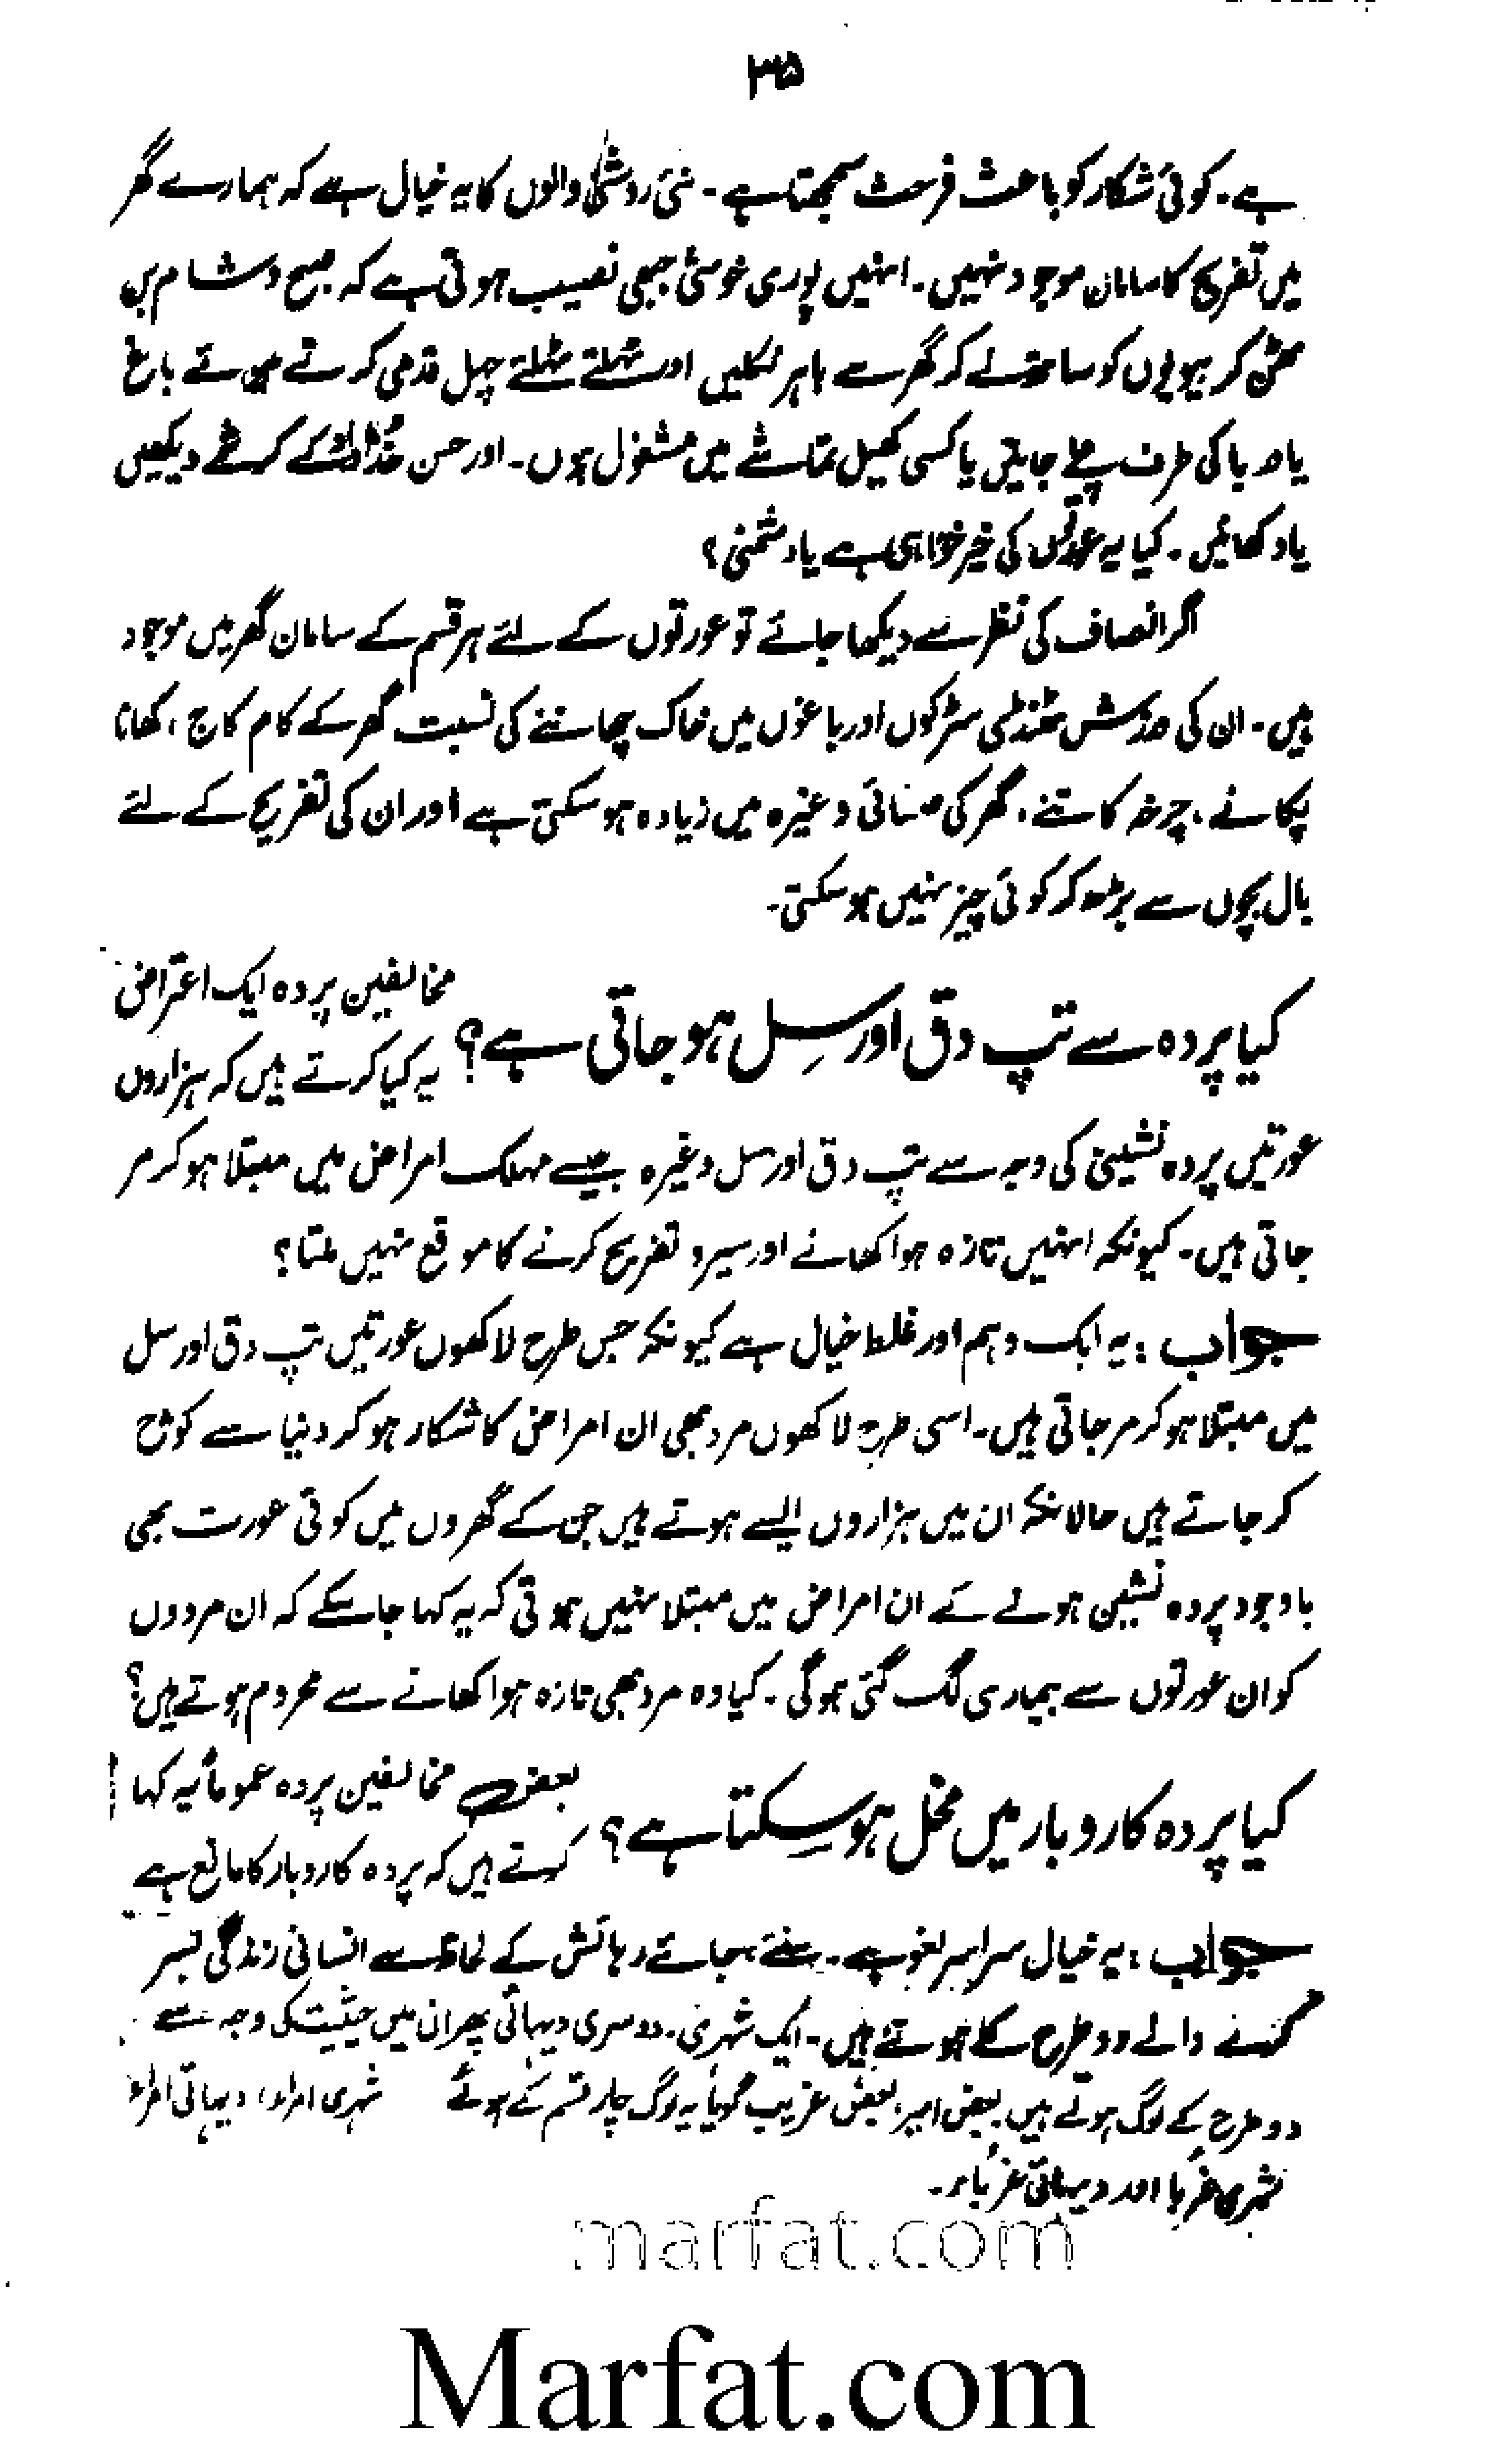 ۳۵
ہے۔ کوئی شکار کو باعث فرحت سمجھتا ہے۔ نئی روشنی والوں کا یہ خیال ہے کہ ہمارے گھر
میں تفریح کا سامان موجود نہیں۔ انہیں پوری خوشی جبھی نصیب ہوتی ہے کہ صبح و شام بن
ٹھن کر بیویوں کو ساتھ لے کر گھر سے باہر نکلیں اور ٹہلتے ٹہلتے چہل قدمی کرتے ہوتے باغ
یا دریا کی طرف چلے جایئں یا کسی کھیل تماشے میں مشغول ہوں۔ اور حسن خداداد کے کرشمے دیکھیں
یا دکھائیں۔ کیا یہ عورتوں کی خیر خواہی ہے یا دشمنی؟
اگر انصاف کی نظر سے دیکھا جائے تو عورتوں کے لئے ہر قسم کے سامان گھر میں موجود
ہیں۔ ان کی ورزش ٹھنڈی سڑکوں اور باغوں میں خاک چھاننے کی نسبت گھر کے کام کاج، کھانا
پکانے، چرخہ کاتنے، گھر کی صفائی وغیرہ میں زیادہ ہو سکتی ہے اور ان کی تفریح کے لئے
بال بچوں سے بڑھ کر کوئی چیز نہیں ہو سکتی۔
کیا پردہ سے تپ دق اور سِل ہو جاتی ہے؟ مخالفین پردہ ایک اعتراض
یہ کیا کرتے ہیں کہ ہزاروں
عورتیں پردہ نشینی کی وجہ سے تپ دق اور سل وغیرہ جیسے مہلک امراض میں مبتلا ہو کر مر
جاتی ہیں۔ کیونکہ انہیں تازہ ہوا کھانے اور سیر و تفریح کرنے کا موقع نہیں ملتا؟
جواب: یہ ایک وہم اور غلط خیال ہے کیونکہ جس طرح لاکھوں عورتیں تپ دق اور سل
میں مبتلا ہو کر مر جاتی ہیں۔ اسی طرح لاکھوں مرد بھی ان امراض کا شکار ہو کر دنیا سے کوچ
کر جاتے ہیں حالانکہ ان میں ہزاروں ایسے ہوتے ہیں جن کے گھروں میں کوئی عورت بھی
باوجود پردہ نشین ہونے کے ان امراض میں مبتلا نہیں ہوتی کہ یہ کہا جا سکے کہ ان مردوں
کو ان عورتوں سے بیماری لگ گئی ہو گی۔ کیا وہ مرد بھی تازہ ہوا کھانے سے محروم ہوتے ہیں؟
کیا پردہ کاروبار میں مخل ہو سکتا ہے؟ بعض مخالفین پردہ عموماً یہ کہا
کرتے ہیں کہ پردہ کاروبار کا مانع ہے
جواب: یہ خیال سراسر لغو ہے۔ سنئے بجائے رہائش کے لحاظ سے انسانی زندگی بسر
کرنے والے دو طرح کے ہوتے ہیں۔ ایک شہری۔ دوسری دیہاتی پھر ان میں حیثیت کی وجہ سے
دو طرح کے لوگ ہوتے ہیں بعض امیر، بعض غریب گویا یہ لوگ چار قسم کے ہوئے شہری امراء، دیہاتی امراء
شہری غربا اور دیہاتی غرباء۔
marfat.com
Marfat.com